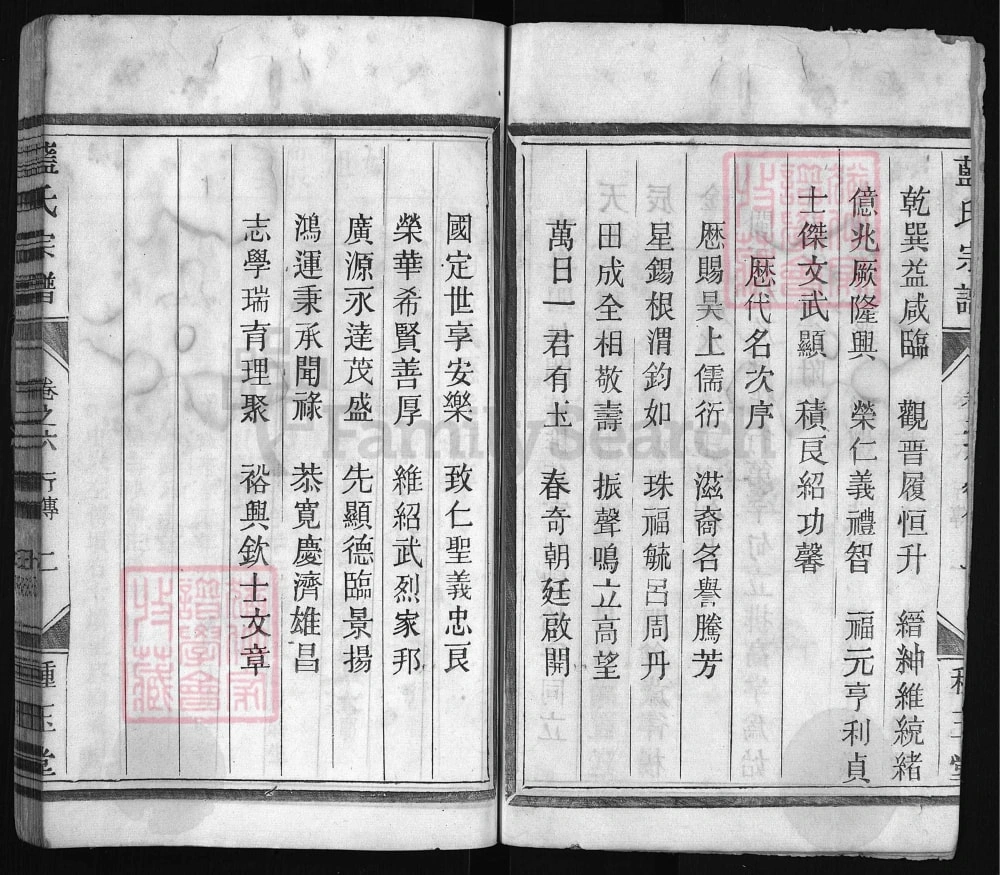 藍氏宗譜
乾巽益咸臨 觀晋履恒升 縉紳維統緒
億兆厥隆興 榮仁義禮智 福元亨利貞
士傑文武顯 積良紹功馨
歷代名次序
歷賜昊上儒衍 滋裔名譽騰芳
星錫根渭鈞如 珠福毓呂周丹
田成全相敬壽 振聲鳴立高望
萬日一君有土 春奇朝廷啟開
國定世享安樂 致仁聖義忠良
榮華希賢善厚 維紹武烈家邦
廣源永達茂盛 先顯德臨景揚
鴻運秉承聞祿 恭寬慶濟雄昌
志學瑞育理聚 裕興欽士文章
藍氏宗譜 卷之六 行傳 二 種玉堂
FamilySearch